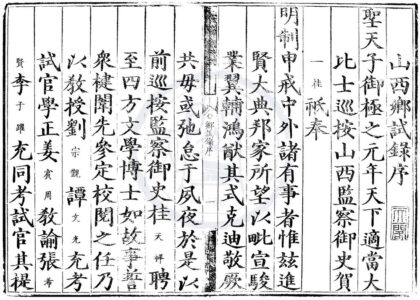 山西鄉試錄序
聖天子御極之元年天下適當大
比士巡按山西監察御史賀
一桂祗奉
明制申戒中外諸有事者惟茲進
賢大典邦家所望以毗宣駿
業翼輔鴻猷其式克迪敬厥
鄉試錄序 一
共毋或弛怠于夙夜於是以
前巡按監察御史桂天祥聘
至四方文學博士如故事善
衆先參定校閱之任乃
以教授劉宗觀譚文充考
試官學正姜賓周教諭張孝
賢李子躍充同考試官其提